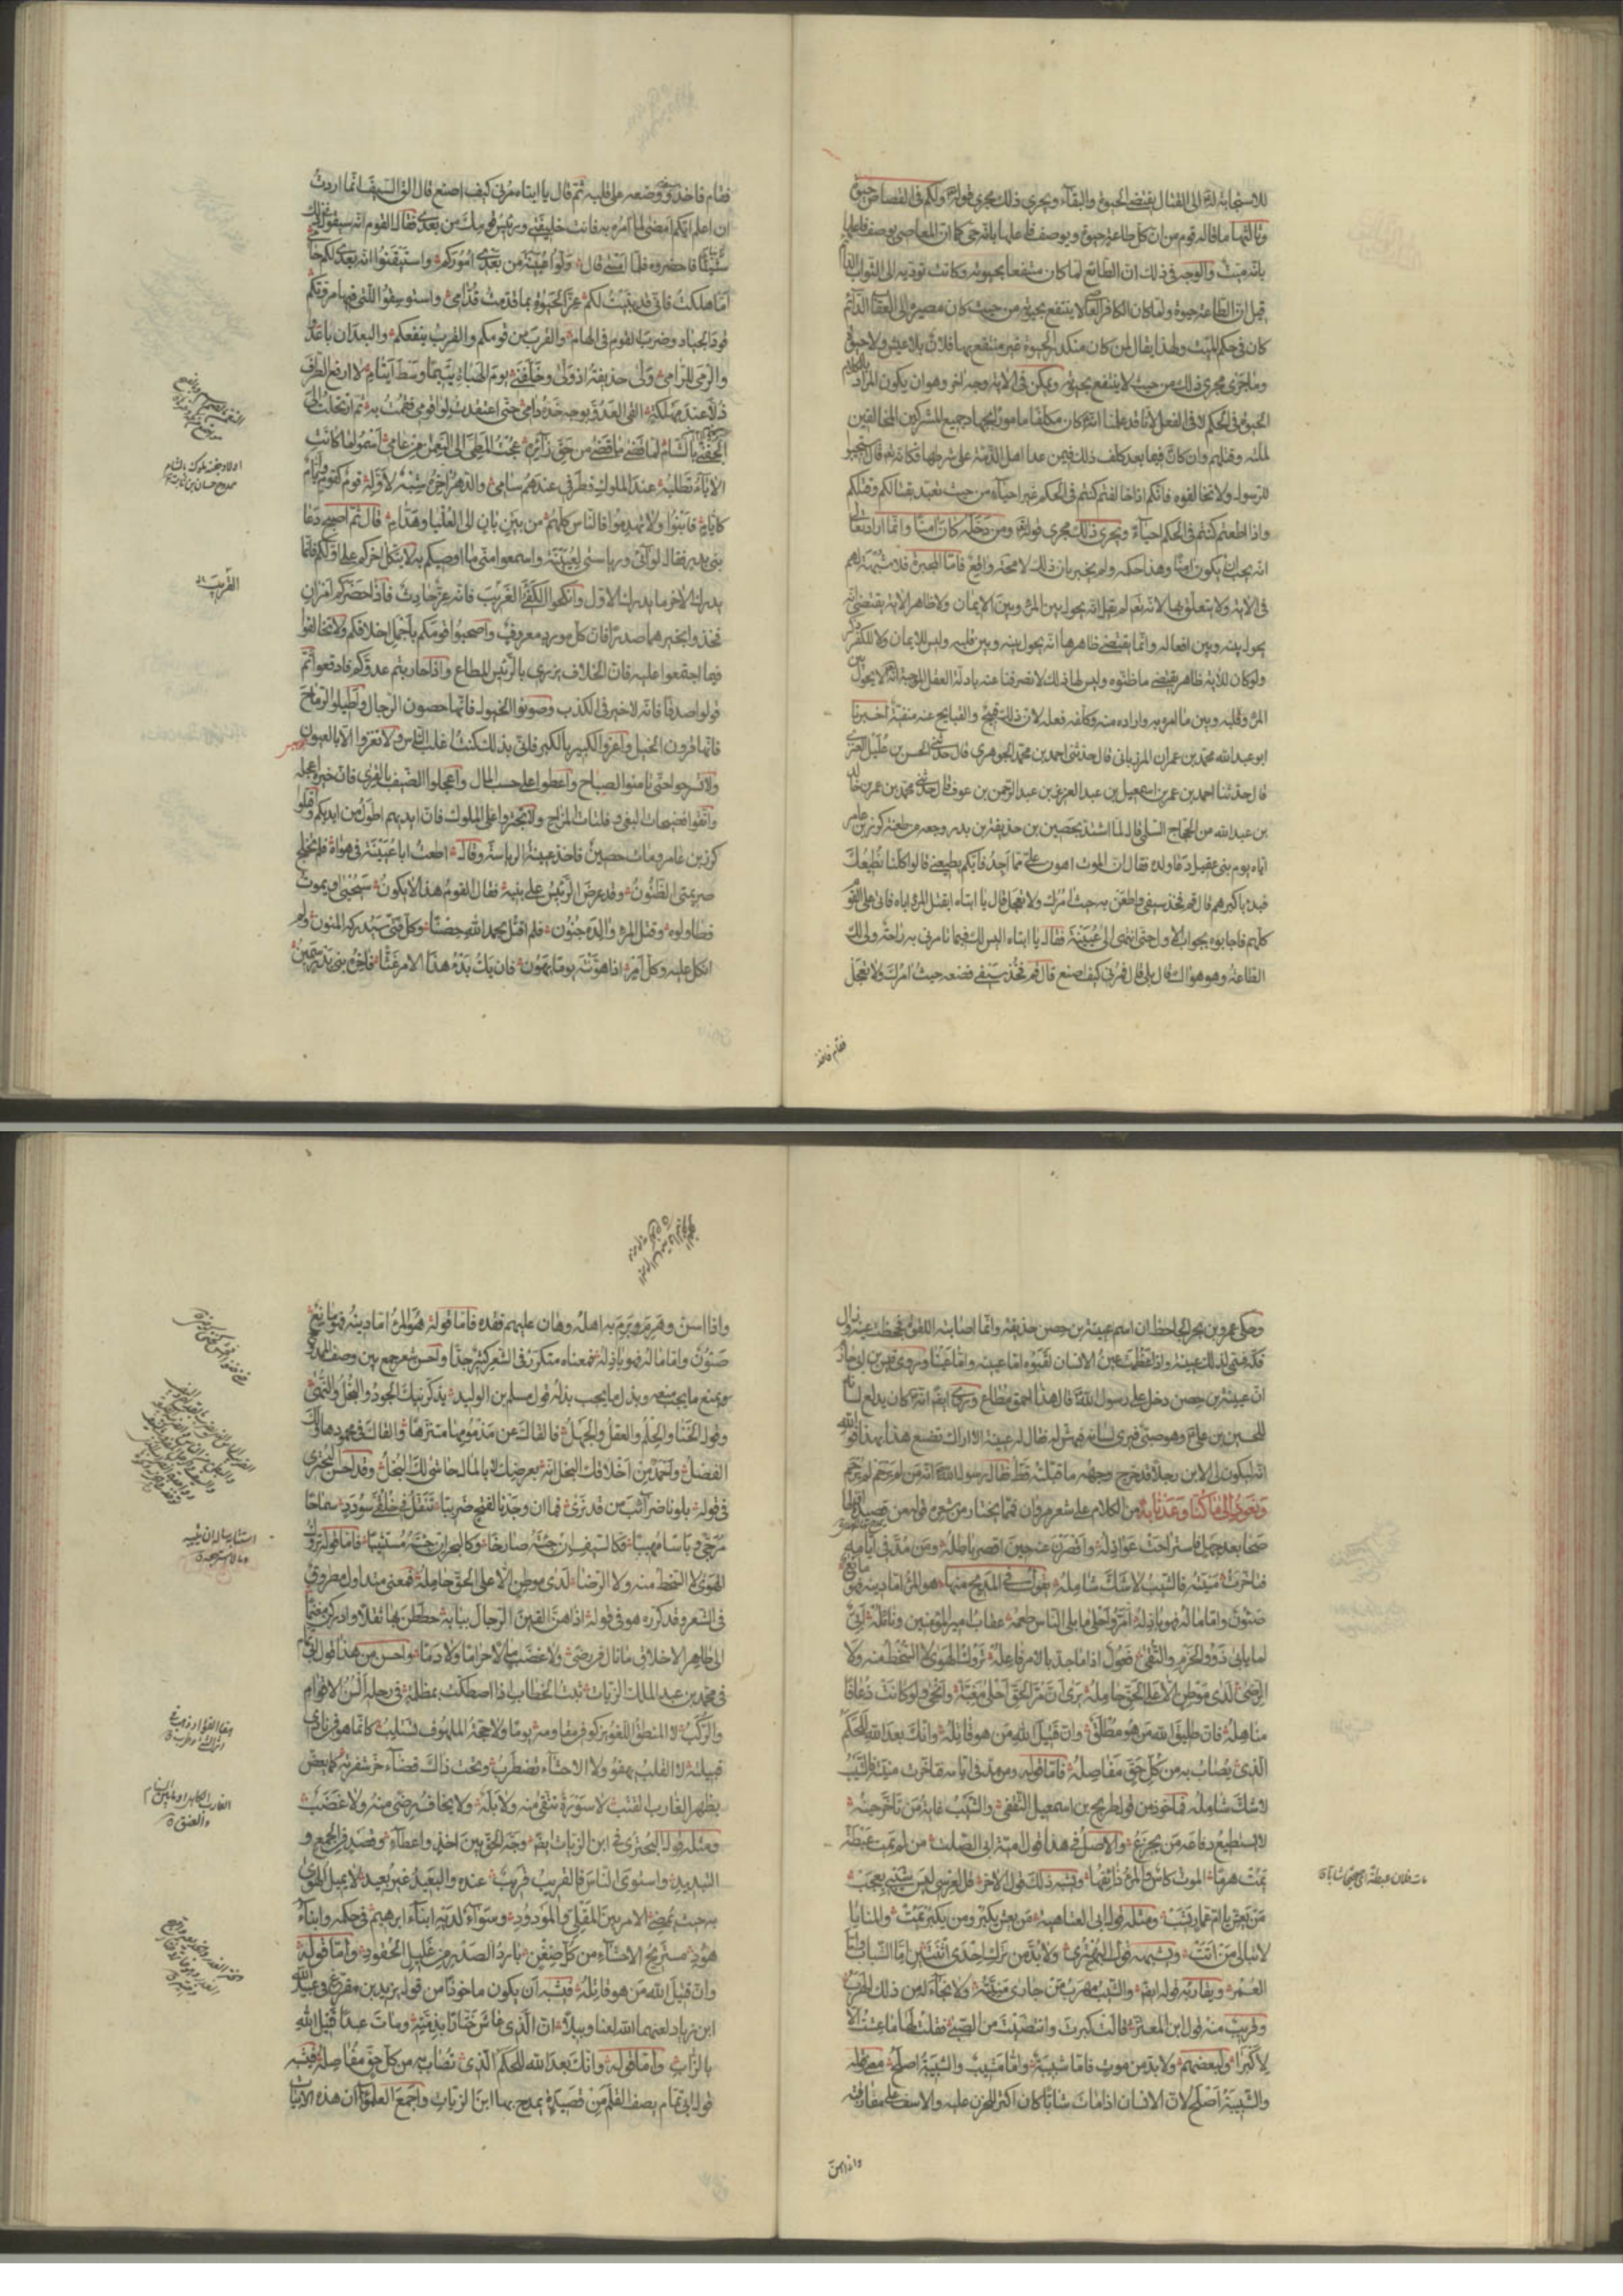 للاستجابة له الى القتال يقتضى الحيوة والبقاء ويجرى ذلك مجرى قوله ولكم فى القصاص حيوة
وثالثها ما قاله قوم من ان كل طاعة حيوة ويوصف فاعلها بانه حى كما ان المعاصى يوصف فاعلها
بانه ميت والوجه فى ذلك ان الطائع لما كان منتفعا بحيوته وكانت تؤديه الى الثواب الدائم
قيل ان الطاعة حيوة ولما كان الكافر العاصى لا ينتفع بحيوته من حيث كان مصيره الى العقاب الدائم
كان فى حكم الميت ولهذا يقال لمن كان منكد الحيوة غير منتفع بها فلان بلا عيش ولا حيوة
وما جرى مجرى ذلك من حيث لا ينتفع بحيوته ويمكن فى الاية وجه اخر وهو ان يكون المراد بالكلام
الحيوة فى الحكم لا فى الفعل لانا قد علمنا انه كان مكلفا مامورا بجهاد جميع المشركين المخالفين
لملته وقتلهم وان كان فيما بعد كلف ذلك فيمن عدا اهل الذمة على شرطها فكانه قال استجيبوا
للرسول ولا تخالفوه فانكم اذا خالفتم كنتم فى الحكم غير احياء من حيث تعبد بقتالكم وقتلكم
واذا اطعتم كنتم فى الحكم احياء ويجرى ذلك مجرى قوله ومن دخله كان امنا وانما اراد تعالى
انه يجب ان يكون امنا وهذا حكمه ولم يخبر بان ذلك لا محة واقع فاما المجبرة فلا شبهة لهم
فى الاية ولا يتعلق بها لانه تعالى لم يقل انه يحول بين المرء وبين الايمان ولا ظاهر الاية يقتضى ان
يحول بينه وبين افعاله وانما يقتضى ظاهرها انه يحول بينه وبين قلبه وليس للايمان ولا للكفر ذكر
ولو كان للاية ظاهر يقتضى ما ظنوه وليس لها ذلك لانصرفنا عنه بادلة العقل الموجبة انه لا يحول بين
المرء وقلبه وبين ما امره به واراده منه وكلفه فعله لان ذلك قبيح والقبايح عنه منفية اخبرنا
ابو عبد الله محمد بن عمران المرزبانى قال حدثنى احمد بن محمد الجوهرى قال حدثنى الحسن بن عليل العنزى
قال حدثنا احمد بن عمر بن اسمعيل بن عبد العزيز بن عبد الرحمن بن عوف قال حدثنى محمد بن عمر بن خالد
بن عبد الله من الحجاج السلمى قال لما اشتد بحصين بن حذيفة بن بدر وجعه من طعنة كرز بن عامر
اياه يوم بنى عقيل دعا ولده فقال ان الموت اهون على مما اجد فايكم يطيعنى قالوا كلنا نطيعك
فبدا باكبرهم فقال قم فخذ سيفى واطعن به حيث امرك ولا تعجل قال يا ابتاه ايقتل المرء اباه فاتى على القوم
كلهم فاجابوه بجواب الاول حتى انتهى الى عيينة فقال يا ابتاه اليس لك فيما تامرنى به راحة ولى لك
الطاعة وهو هواك قال بلى قال فمرنى كيف اصنع قال قم فخذ سيفى فضعه حيث امرك ولا تعجل
فقام فاخذ
فقام فاخذ سيفه ووضعه على قلبه ثم قال يا ابتاه مرنى كيف اصنع قال الق السيف انما اردت
ان اعلم ايكم امضى لما امره به فانت خليفتى ورئيس قومك من بعدى فقال القوم انه سيقول فى ذلك
شيئا فاحضروه فلما امسى قال ولوا عيينة من بعدى اموركم واستيقنوا انه بعدى لكم حامى
اما هلكت فانى قد بنيت لكم عز الحيوة بما قدمت قدامى واستوسقوا للتى فيها مروتكم
قود الجياد وضرب القوم فى الهام والقرب من قومكم والقرب ينفعكم والبعد ان باعدوا
والرمى للرامى ولى حذيفة اذ ولى وخلفنى يوم الهباة يتيما وسط ايتام لا ارفع الطرف
ذلا عند مهلكة القى العدو بوجه خده دامى حتى اعتقدت لوا قومى فقمت به ثم ارتحلت الى
الجفنى بالشام لما قضى ما قضى من حق زائره عجت المطى الى النعمان من عامى اسموا لما كانت
الاباء تطلبه عند الملوك فطرفى عندهم سامى والدهر اخره شبه لاوله قوم كقوم وايام
كايام فابنوا ولا تهدموا فالناس كلهم من بين بان الى العليا وهدام قال ثم اصبح دعا
بنى بدر فقال لوآئى ورياستى لعيينة واسمعوا منى ما اوصيكم به لا يتكل اخركم على اولكم فانما
يدرك الاخر ما يدرك الاول وانكحوا الكفى الغريب فانه عز حادث فاذا حضركم امران
فخذوا بخيرهما صدرا فان كل مورد معروف واصحبوا قومكم باجمل اخلاقكم ولا تخالفوا
فيما اجتمعوا عليه فان الخلاف يزرى بالرئيس المطاع واذا حاربتم عدوكم فاوقعوا ثم
قولوا صدقا فانه لا خير فى الكذب وصونوا الخيول فانها حصون الرجال واطيلوا الرماح
فانها قرون الخيل واعزوا الكبير بالكبر فانى بذلك كنت اغلب الناس ولا تغزوا الا بالعيون
ولا تسرحوا حتى تامنوا الصباح واعطوا على حسب المال واعجلوا الضيف بالقرى فان خيره اعجله
واتقوا فضيحات البغى وفلتات المزاح ولا تجتروا على الملوك فان ايديهم اطول من ايديكم واقتلوا
كرز بن عامر ومات حصين فاخذ عيينة الرياسة وقال اطعت ابا عيينة فى هواه فلم تخلج
صريمتى الظنون وقد عرض الرئيس على بنيه فقال القوم هذا لا يكون سيحيى او يموت
فطاولوه وقتل المرء والده جنون فلم اقتل بحمد الله حصنا وكل فتى سيدركه المنون ولم
انكل عليه وكل امر اذا هونته يوما يهون فان يك بدء هذا الامر غثا فاخره بنى بدر سمين
اولاد جفنة ملوك بالشام
ممدوح حسان بن ثابت
الغريب
وحكى عمرو بن بحر الجاحظ ان اسم عيينة بن حصن حذيفة وانما اصابته اللقوة فجحظت عينه وزال
فكه فسمى لذلك عيينة واذا عظمت عين الانسان لقبوه ابا عيينة وابا عيناء وروى قيس بن ابى حازم
ان عيينة بن حصن دخل على رسول الله فقال هذا احمق مطاع وروى ايضا انه كان يدلع لسانه
للحسين بن على وهو صبى فيرى لسانه فيهش له فقال له عيينة الا اراك تصنع هذا بهذا فوالله
انه ليكون لى الابن رجلا قد خرج وجهه ما قبلته قط فقال رسول الله انه من لم يرحم لم يرحم
ونعود الى ما كنا وعدنا به من الكلام على شعر مروان فمما يختار من شعره قوله من قصيدة اولها
صحا بعد جهل فاستراحت عواذله واقصرن عنه حين اقصر باطله ومن مد فى ايامه
فتاخرت منيته فالشيب لا شك شامله يقول فى المديح منها هو المرء اما دينه فهو مانع
صئون واما ماله فهو باذله امر واحلى ما بلى الناس طعمه عقاب امير المؤمنين ونائله ابى
لما يابى ذوو الحزم والتقى فعول اذا ما جد بالامر فاعله تروك الهوى لا السخط منه ولا
الرضى لدى موطن الا على الحق حامله يرى ان مر الحق احلى مغبة وانجى ولو كانت ذعافا
مناهله فان طليق الله من هو مطلق وان قتيل الله من هو قاتله وانك بعد الله للحكم
الذى يصاب به من كل حق مفاصله فاما قوله ومن مد فى ايامه فتاخرت منيته فالشيب
لا شك شامله فماخوذ من قول طريح بن اسمعيل الثقفى والشيب غاية من تاخر حينه
لا يستطيع دفاعه من يجزع والاصل فى هذا قول امية ابن ابى الصلت من لم يمت عبطة
يمت هرما الموت كاس والمرء ذائقها ويشبه ذلك قول الاخر قل لعرسى ليس شيبى بعجب
من يعش يا ام عمار يشب ومثله قول ابى العتاهية من يعش يكبر ومن يكبر يمت والمنايا
لا تبالى من اتت وشبيه قول البحترى ولا بد من ترك احدى اثنتين اما الشباب واما
العمر ويقاربه قوله ايضا والشيب مهرب من جارى منيته ولا نجاء له من ذلك الهرب
وقريب منه قول ابن المعتز قالت كبرت وانتضيت من الصبى فقلت لها ما عشت الا
لاكبرا ولبعضهم ولا بد من موت فاما شبيبة واما مشيب والشبيبة اصلح معنى قوله
والشبيبة اصلح لان الانسان اذا مات شابا كان اكثر للحزن عليه والاسف على مفارقته
مات فلان عبطة اى صحيحا شابا
واذا اسن
واذا اسن وهرم وبرم به اهله وهان عليهم فقده فاما قوله هو المرء اما دينه فهو مانع
صئون واما ماله فهو باذله فمعناه متكرر فى الشعر كثير جدا واحسن شعر جمع بين وصف الممدوح
بمنع ما يجب منعه وبذل ما يجب بذله قول مسلم بن الوليد يذكرنيك الجود والبخل والنهى
وقول الخنا والحلم والعقل والجهل فالقاك عن مذمومها متنزها والقاك فى محمودها ولك
الفضل واحمد من اخلاقك البخل انه بعرضك لا بالمال حاشى لك البخل وقد احسن البحترى
فى قوله بلونا ضرائب من قد نرى فما ان وجدنا لفتح ضريبا تنقل فى خلقى سودد سماحا
مرجى وباسا مهيبا فكالسيف ان جئته صارخا وكالبحر ان جئته مستثيبا فاما قوله تروك
الهوى لا السخط منه ولا الرضا لدى موطن الا على الحق حامله فمعنى متداول مطروق
فى الشعر وقد كرره هو فى قوله
الى ظاهر الاخلاق ما نال فى رضى ولا غضب مالا حراما ولا دما واحسن من هذا قول ابى تمام
فى محمد بن عبد الملك الزيات ثبت الخطاب اذا اصطكت بمظلمة فى رحله السن الاقوام
والركب لا المنطق اللغو يزكو فى مقاومه يوما ولا حجة الملهوف تستلب كانما هو فى نادى
قبيلته لا القلب يهفو ولا الاحشاء تضطرب وتحت ذاك قضاء حز شفرته كما يعض
بظهر الغارب القتب لا سورة تتقى منه ولا بله ولا يخاف رضى منه ولا غضب
ومثله قول البحترى فى ابن الزيات ايضا وجه الحق بين اخذ واعطاء وقصد فى الجمع و
التبديد واستوى الناس فالقريب قريب عنده والبعيد غير بعيد لا يميل الهوى
به حيث يمضى الامر بين المقلى والمودود وسواء لديه ابناء ابرهيم فى حكمه وابناء
هود مستريح الاحشاء من كل ضغن بارد الصدر من غليل الحقود واما قوله
وان قتيل الله من هو قاتله فيشبه ان يكون ماخوذا من قول يزيد بن مفرغ فى عبيد الله
ابن زياد لعنهما الله لعنا وبيلا ان الذى عاش ختارا بذمته ومات عبدا قتيل الله
بالزاب واما قوله وانك بعد الله للحكم الذى تصاب به من كل حق مفاصله فيشبه
قول ابى تمام يصف القلم من قصيدة يمدح بها ابن الزيات واجمع العلماء ان هذه الابيات